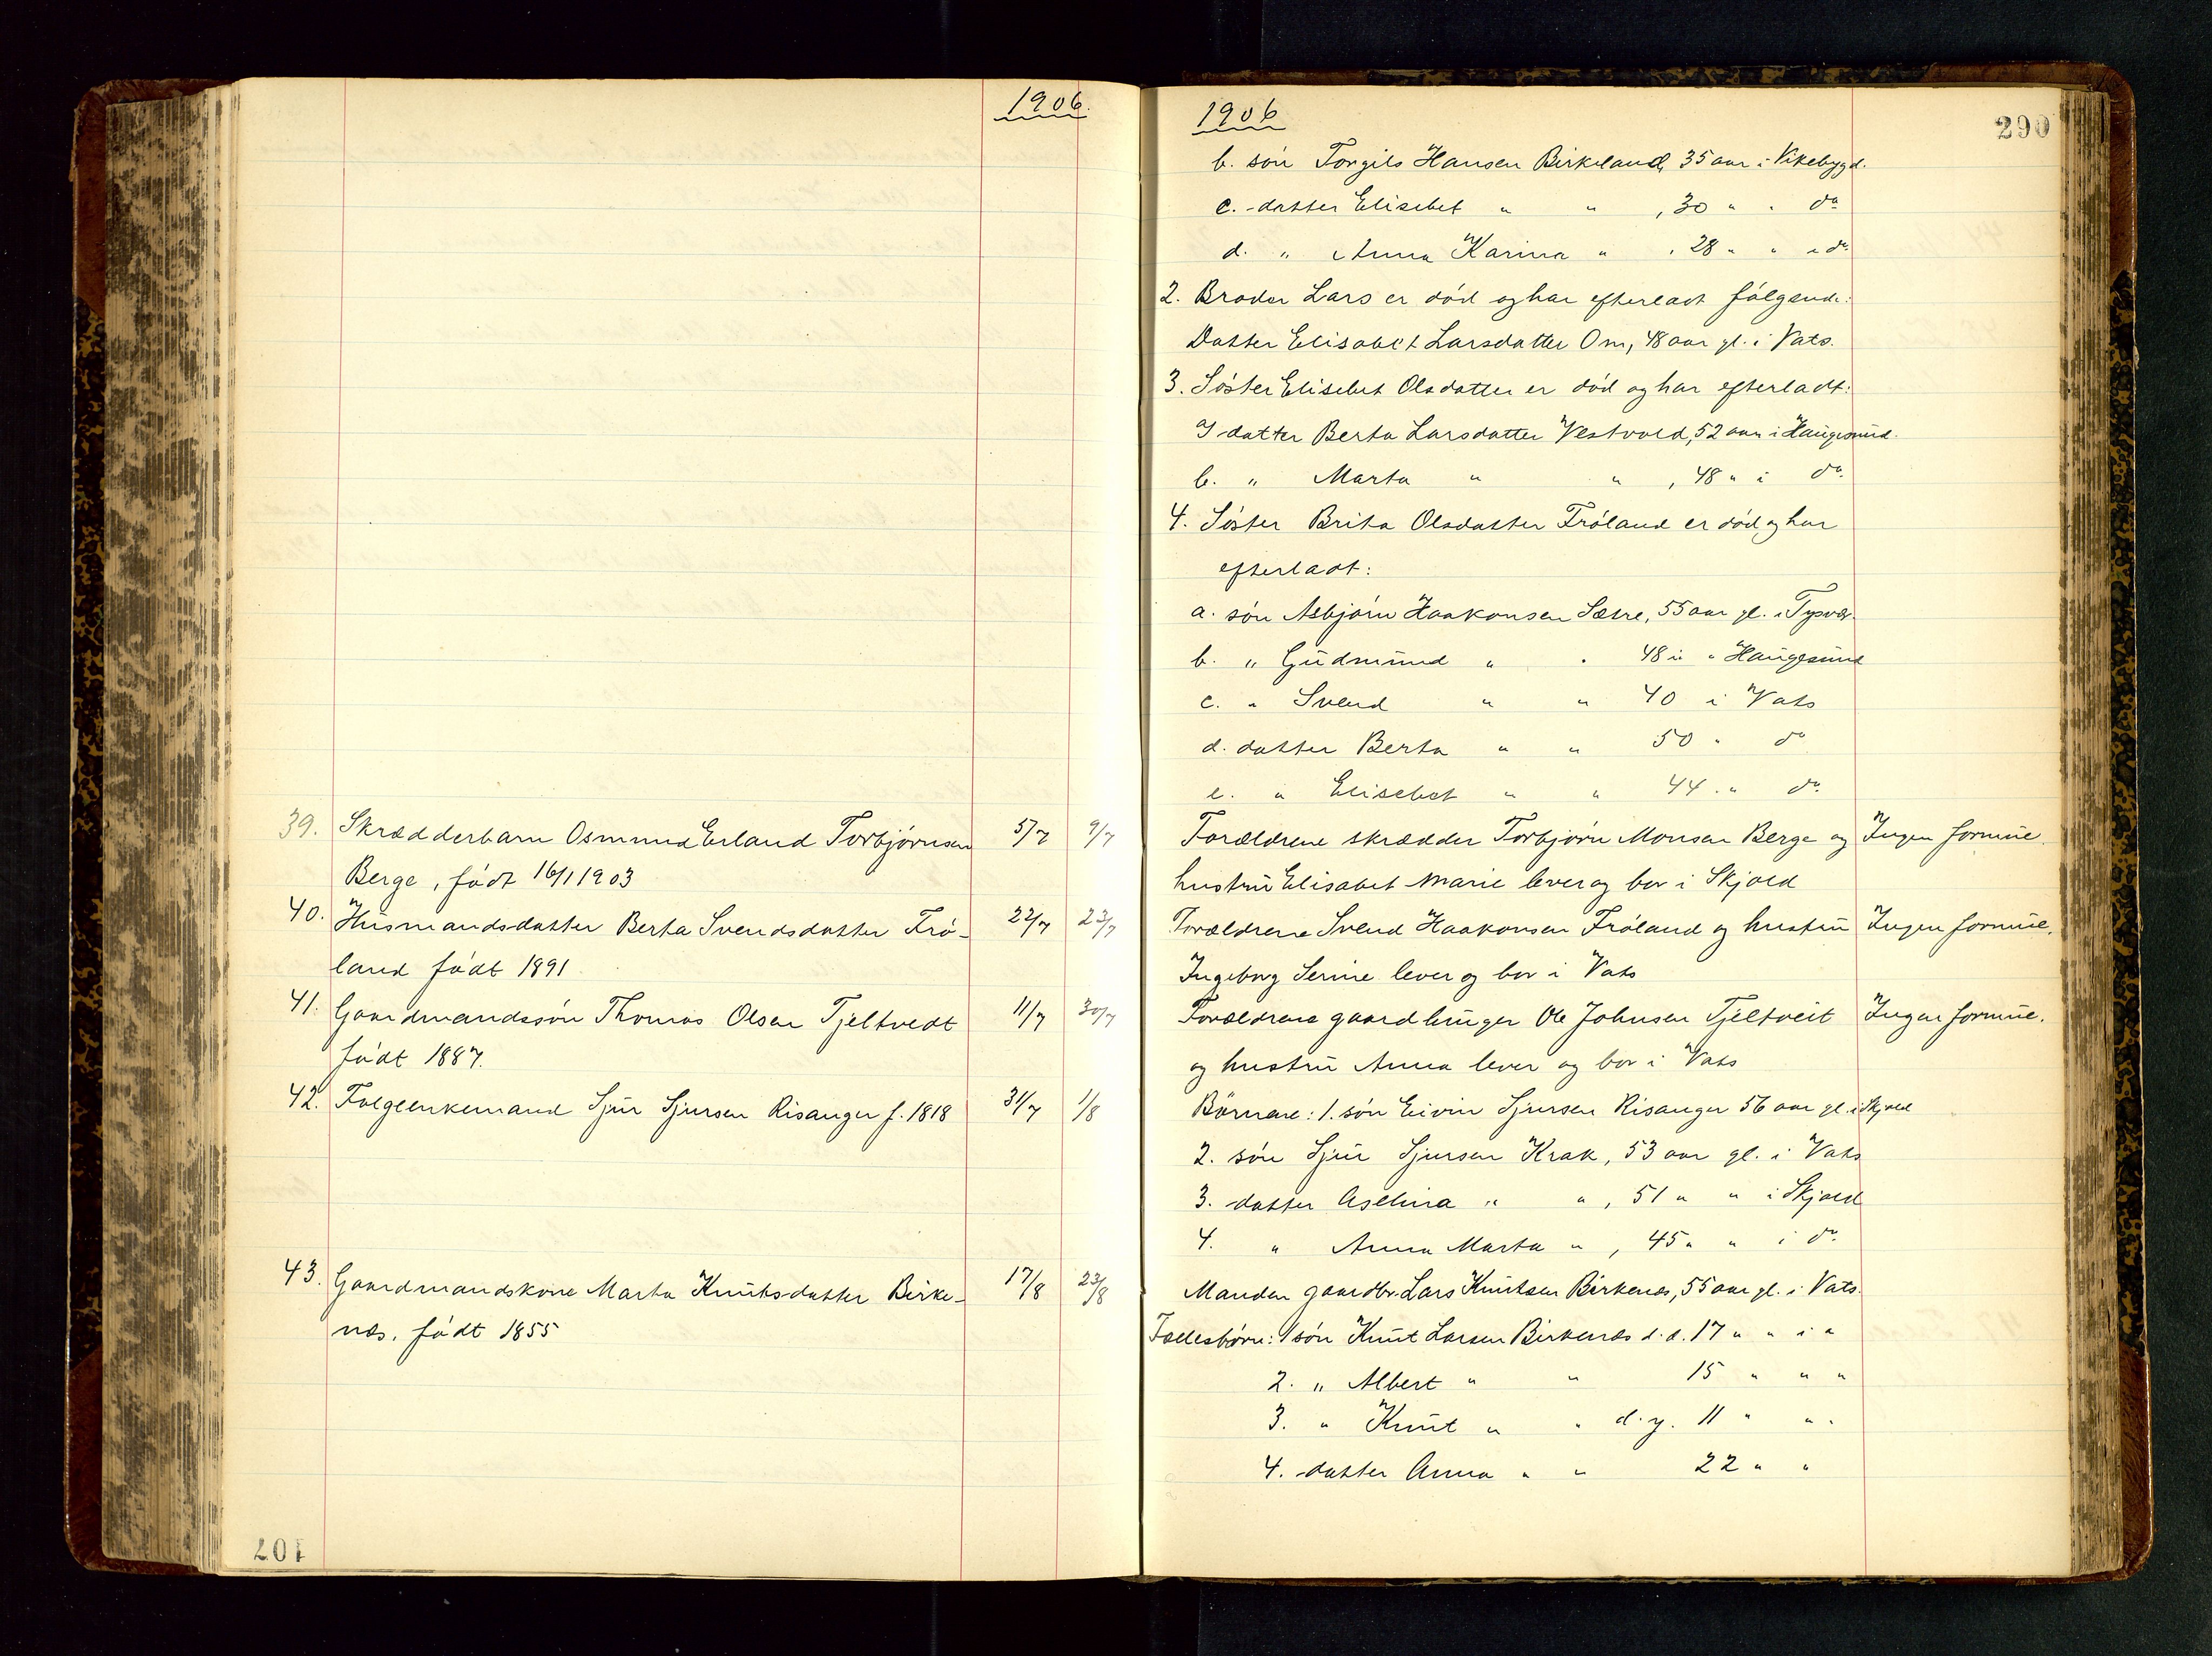 1906.
39. Skrædderbarn Osmund Erland Torbjørnsen 5/7 9/7
Berge, født 16/1 1903
40. Husmandsdatter Berta Svendsdatter Frø- 22/7 23/7
land født 1891
41. Gaardmandssøn Thomas Olsen Tjeltvedt 11/7 30/7
født 1887.
42. Folgeenkemand Sjur Sjursen Risanger f. 1818 31/7 1/8
43. Gaardmandskone Marta Knutsdatter Birke- 17/8 23/8
næs, født 1855
201
1906
290
b. søn Torgils Hansen Birkeland, 35 aar i Vikebygd.
c. datter Elisebet " " , 30 " " do
d. " Anna Karina " , 28 " " i do
2. Broder Lars er død og har efterladt følgende:
Datter Elisabet Larsdatter Om, 48 aar gl. i Vats.
3. Søster Elisebet Olsdatter er død og har efterladt:
datter Berta Larsdatter Vestvold, 52 aar i Haugesund.
b. " Marta " " , 48 " i do.
4. Søster Brita Olsdatter Frøland er død og har
efterladt:
a. søn Asbjørn Haakonsen Sætre, 55 aar gl. i Tysvær.
b. " Gudmund " " 48 " " Haugesund
c. " Svend " " 40 i Vats
d. datter Berta " " 50 " do
e. " Elisebet " " 44 " " do.
Forældrene skrædder Torbjørn Monsen Berge og Ingen formue.
hustru Elisabet Marie lever og bor i Skjold
Forældrene Svend Haakonsen Frøland og hustru Ingen formue.
Ingeborg Serine lever og bor i Vats
Forældrene gaardbruger Ole Johnsen Tjeltveit Ingen formue.
og hustru Anna lever og bor i Vats
Børnene: 1. søn Eivin Sjursen Risanger 56 aar gl. i Skjold
2. søn Sjur Sjursen Krak, 53 aar gl. i Vats
3. datter Aselina " " , 51 " " i Skjold
4. " Anna Marta " , 45 " " i do.
Manden gaardbr. Lars Knutsen Birkenæs, 55 aar gl. i Vats.
Fællesbørn: 1 søn Knut Larsen Birkenæs d.æ. 17 " " i "
2. " Albert " " 15 " " "
3. " Knut " " d.y. 11 " " "
4. datter Anna " " 22 " "